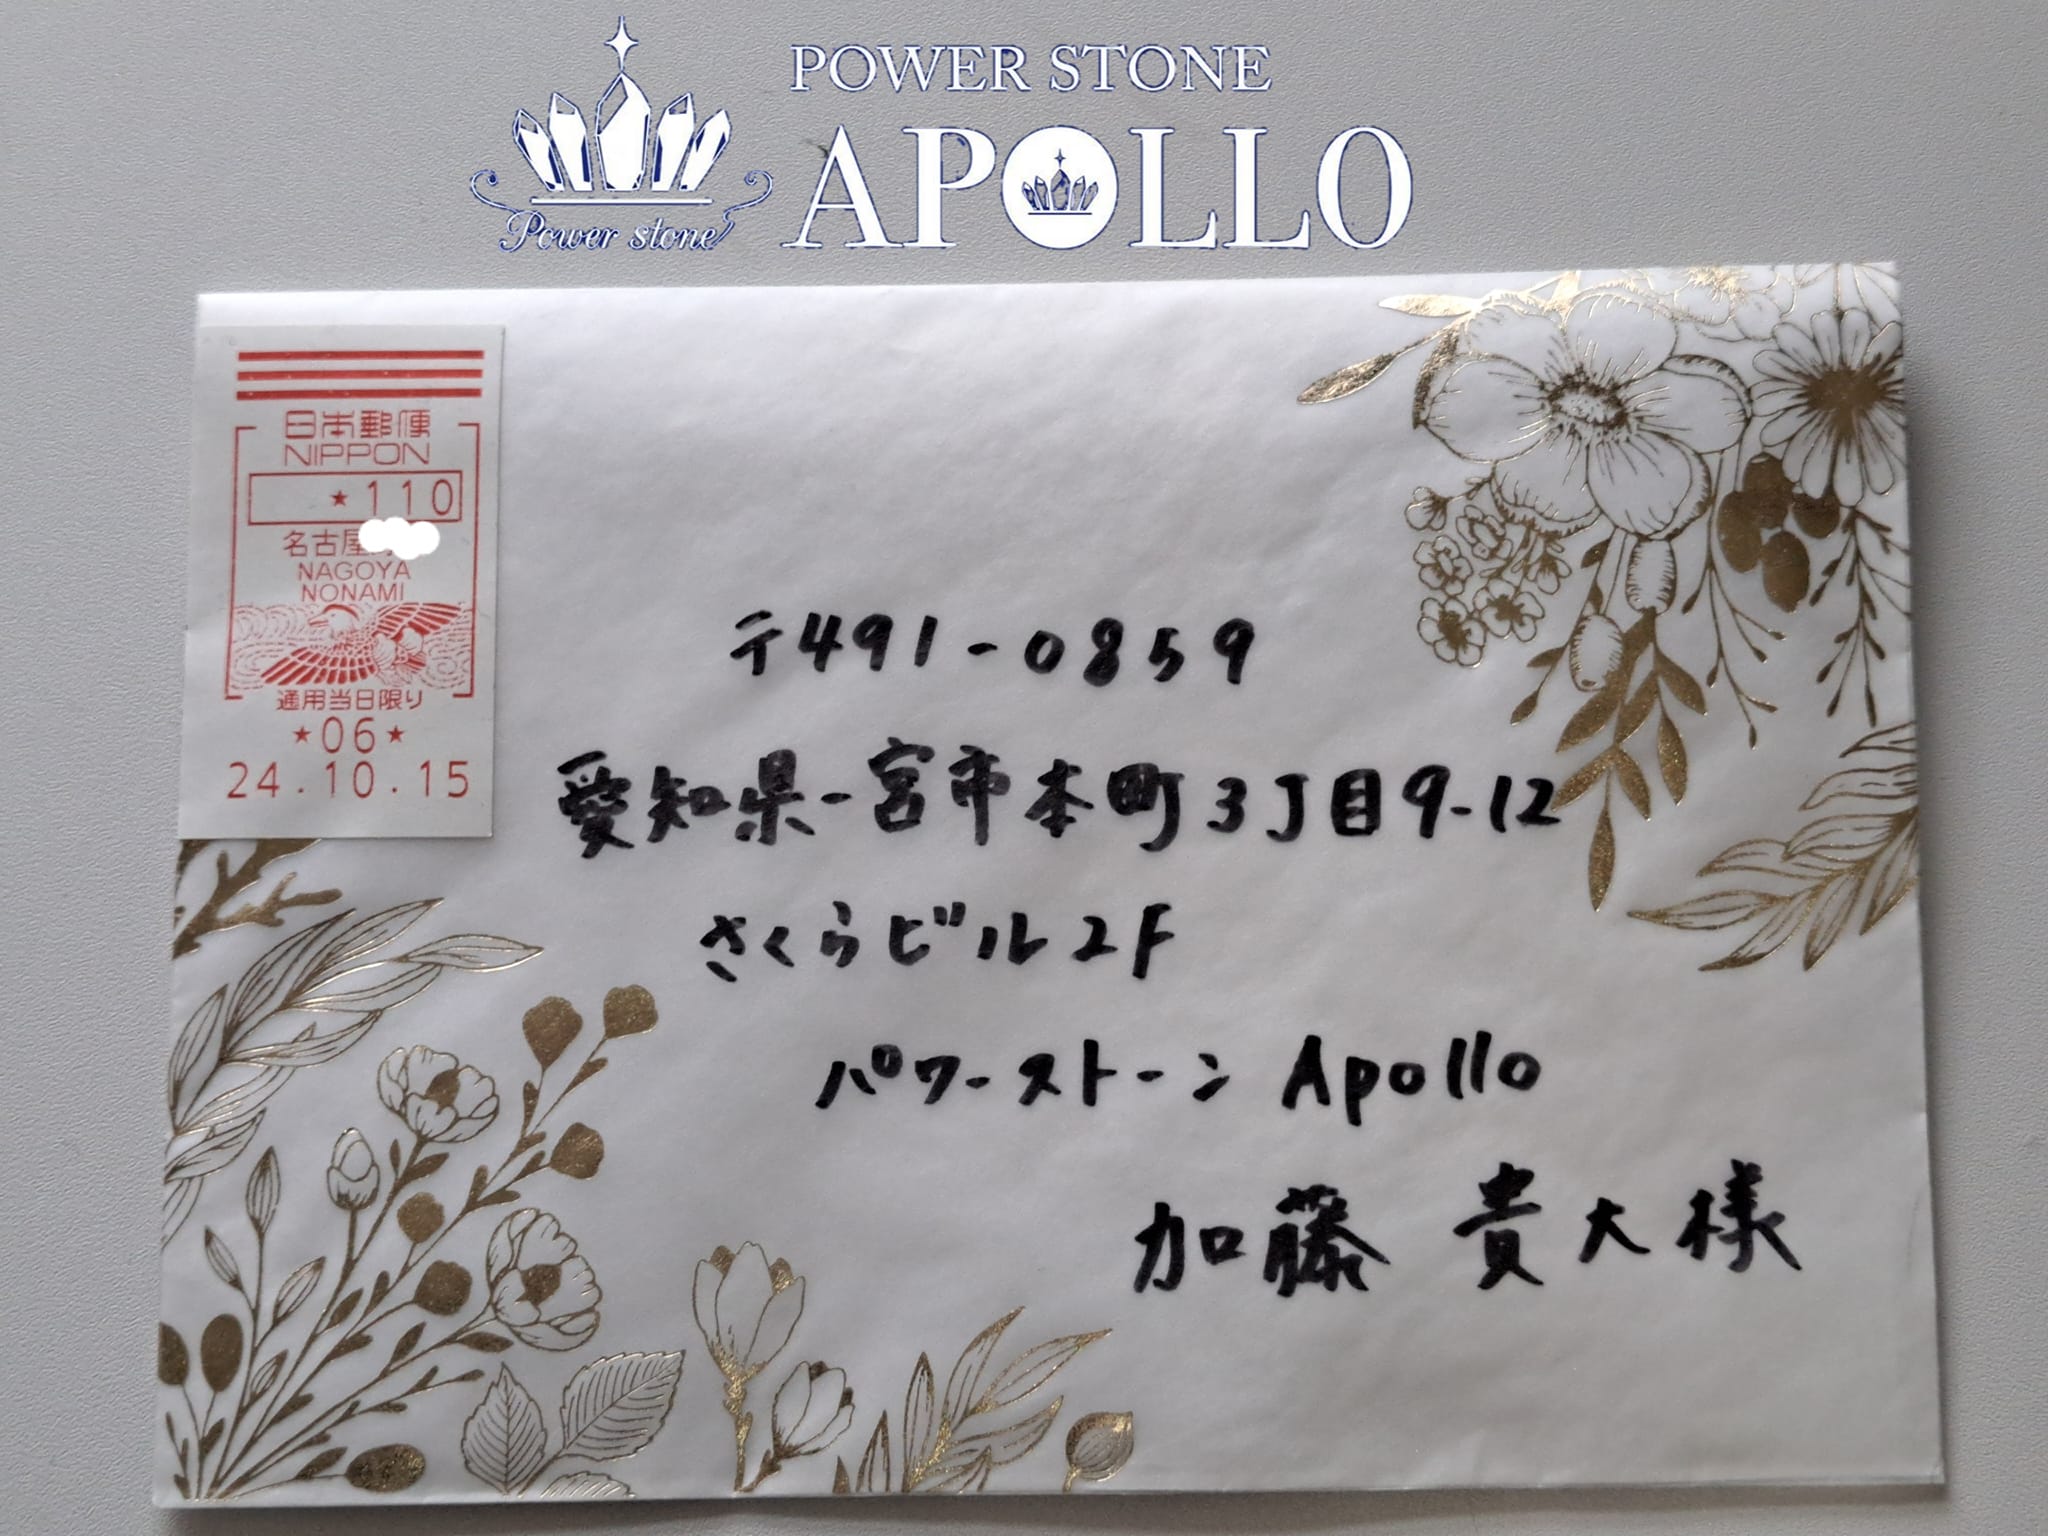 POWER STONE
APOLLO
Power stone
日本郵便
NIPPON
★110
名古屋
NAGOYA
NONAMI
通用当日限り
★06★
24.10.15
〒491-0859
愛知県一宮市本町3丁目9-12
さくらビル2F
パワーストーン Apollo
加藤 貴大様